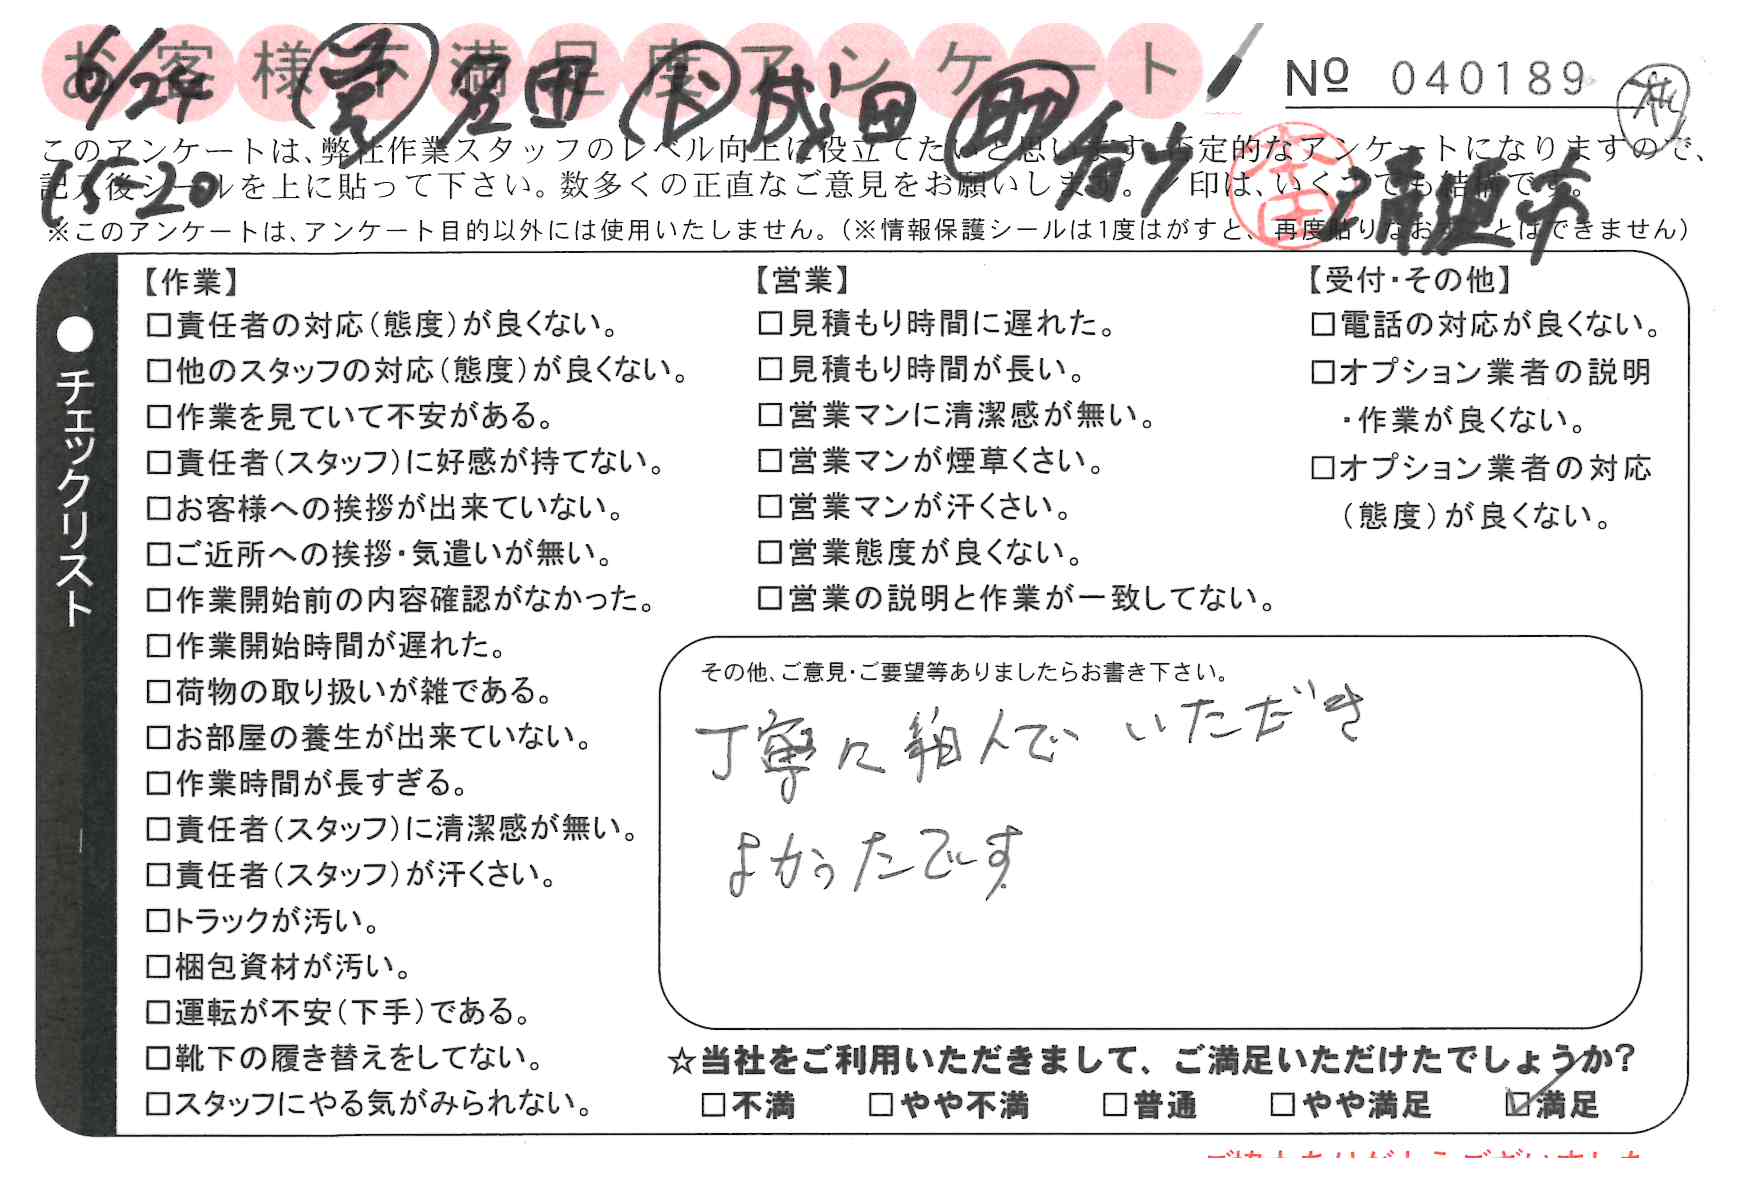 お客様不満足度アンケート
№ 040189
6/24 営 窪田 成田 助
15-20
このアンケートは、弊社作業スタッフのレベル向上に役立てたいと思います。否定的なアンケートになりますので、
記入後シールを上に貼って下さい。数多くの正直なご意見をお願いします。✓印は、いくつでも結構です。
※このアンケートは、アンケート目的以外には使用いたしません。(※情報保護シールは1度はがすと、再度貼りなおすことはできません)
●チェックリスト
【作業】
□責任者の対応(態度)が良くない。
□他のスタッフの対応(態度)が良くない。
□作業を見ていて不安がある。
□責任者(スタッフ)に好感が持てない。
□お客様への挨拶が出来ていない。
□ご近所への挨拶・気遣いが無い。
□作業開始前の内容確認がなかった。
□作業開始時間が遅れた。
□荷物の取り扱いが雑である。
□お部屋の養生が出来ていない。
□作業時間が長すぎる。
□責任者(スタッフ)に清潔感が無い。
□責任者(スタッフ)が汗くさい。
□トラックが汚い。
□梱包資材が汚い。
□運転が不安(下手)である。
□靴下の履き替えをしてない。
□スタッフにやる気がみられない。
【営業】
□見積もり時間に遅れた。
□見積もり時間が長い。
□営業マンに清潔感が無い。
□営業マンが煙草くさい。
□営業マンが汗くさい。
□営業態度が良くない。
□営業の説明と作業が一致してない。
【受付・その他】
□電話の対応が良くない。
□オプション業者の説明
・作業が良くない。
□オプション業者の対応
(態度)が良くない。
その他、ご意見・ご要望等ありましたらお書き下さい。
丁寧に組んでいただき
よかったです
☆当社をご利用いただきまして、ご満足いただけたでしょうか?
□不満 □やや不満 □普通 □やや満足 ☑満足
ご協力ありがとうございました